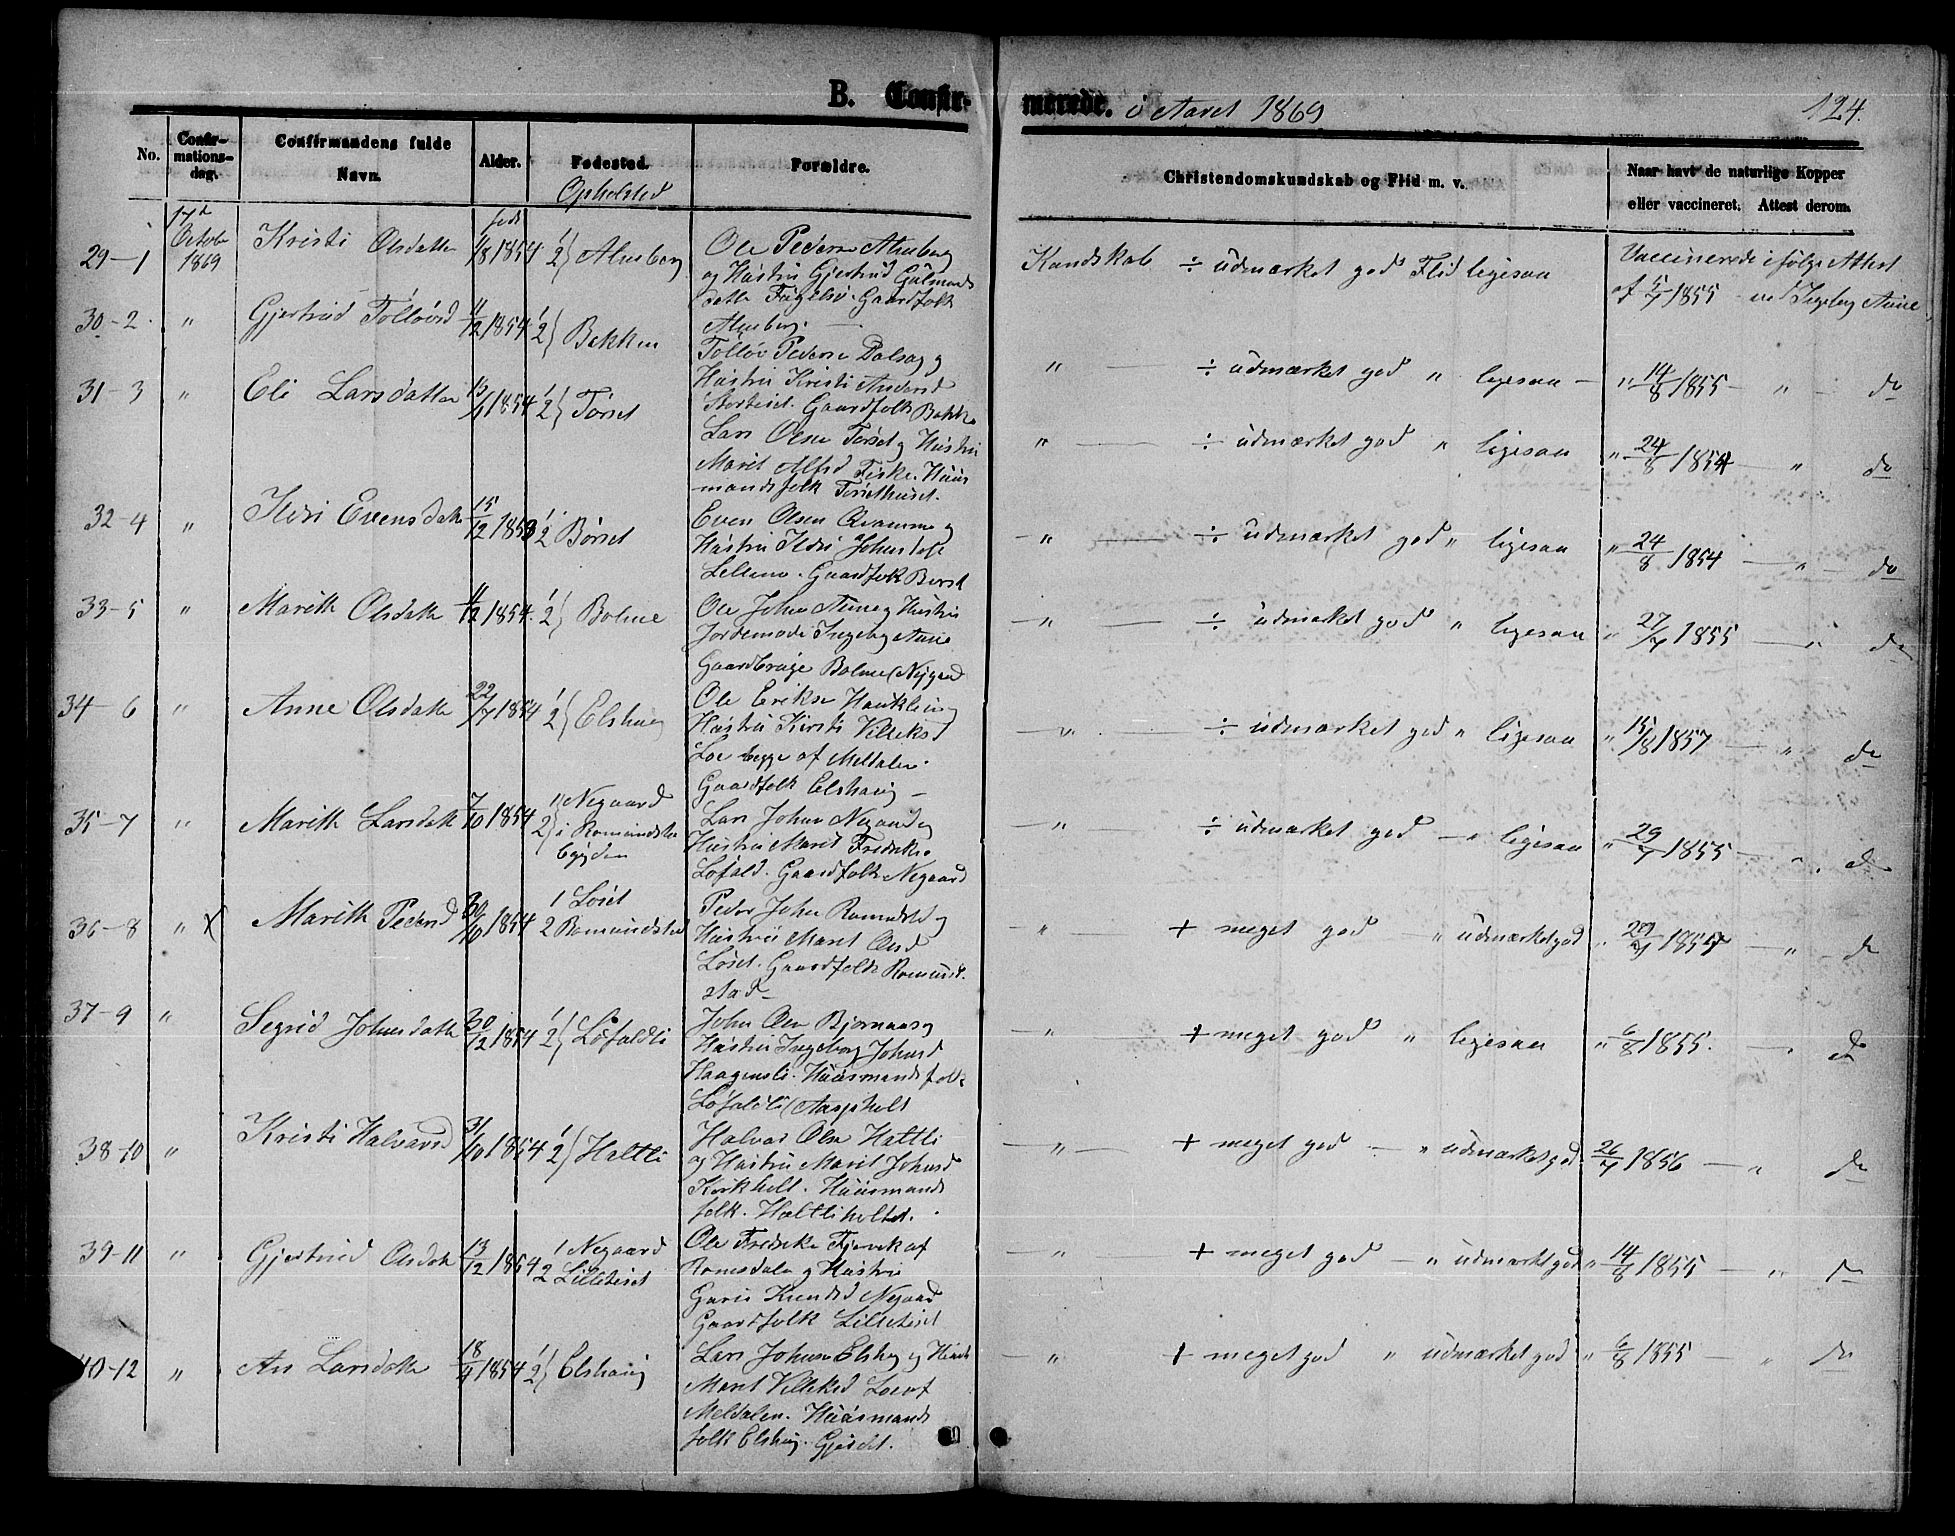 B. Confir-
merede. i Aaret 1869
124.
No.
Confir-
mations-
dag.
Confirmandens fulde
Navn.
Alder.
Fødested.
Opholsted
Forældre.
Christendomskundskab og Flid m. v.
Naar havt de naturlige Kopper
eller vaccineret. Attest derom.
29-1
17d
Octobr
1869
Kristi Olsdatter
født
1/8 1854.
1 2} Almberg
Ole Pederse Almberg
og Hustru Gjertrud
Gaardfolk
Almberg.
Kundskab ÷ udmærket god Flid ligesaa
Vaccinerede ifølge Attest
af 5/7 1855 ved Ingebg Aune
30-2. " Gjertrud Tolløvsd 11/12 1854 1 2} Bakken
Tolløv Pederse Dalsag og
Hustru Kristi Andersd
Storteiset. Gaardfolk Bakke
" ÷ udmærket god " ligesaa - " 14/8 1855 - " - do
31-3 " Eli Larsdatter 1854 1 2} Torset
Lars Olse Torset og Hustru
Marit Alfsd Fiske. Huus
mandsfolk Torsethuset.
" ÷ udmærket god " ligesaa " 24/8 1854 - " do
32-4 " Ildri Evensdatte 15/12 1853 1 2 Børset
Even Olsen Qvamme og
Hustru Ildri Johnsdatte
Lillemo. Gaardfolk Børset
" ÷ udmærket god " ligesaa " 24/8 1854 - " - do
33-5 " Marith Olsdatte 11/12 1854. 1 2} Bolme
Ole Johnse Aune og Hustru
Jordemode Ingebg Aune
Gaardbruge Bolme (Nygaard
" ÷ udmærket god " ligesaa " 27/7 1855 - " do
34-6 " Anne Olsdatte 22/7 1854 1 2} Elshaug
Ole Erikse Haukling
Hustru Kirsti Villeksd
Loe begge af Meldalen.
Gaardfolk Elshaug -
" ÷ udmærket god " ligesaa " 15/8 1857 - " do
35-7 " Marith Larsdatte 7/10 1854 1 2} Negaard
i Romundsta
bygden
Lars Johnse Negaard og
Hustru Marit Fredrikse
Løfald. Gaardfolk Negaard
" ÷ udmærket god - " ligesaa " 29/7 1855 - " do
36-8 " X Marith Pedersd 30/10 1854 1 Løset
2 Romundstad
Peder Johnse Romundstd og
Hustru Marit Olsd
Løset. Gaardfolk Romund-
stad -
" + meget god - " udmærket god " - " - do
37-9 " Segrid Johnsdatte 30/12 1854 1 2} Løfaldli
John Olse Bjørnaas og
Hustru Ingeborg Johnsd
Haagensli. Huusmandsfolk
Løfaldli (Aaspholt
" + meget god " ligesaa " 6/8 1855. - " do
38-10 " Kristi Halvarsd 31/10 1854 1 2} Haltli
Halvar Olse Haltli
og Hustru Marit Johnsd
Kirkholt. Huusmands
folk. Haltliholtet.
" + meget god - " udmærket god 26/7 1856 - " do
39-11 " Gjertrud Olsdatte 13/12 1854 1 Negaard
2 Lilleteiset
Ole Fredrikse Fjervik af
Romsdalen og Hustru
Guru Knudsd Negaard
Gaardfolk Lilleteiset
" + meget god - " udmærket god " 14/8 1855 - " do
40-12 " An Larsdatte 18/4 1854 1 2} Elshaug
Lars Johnse Elshg og Hustr
Marit Villeksd Loe af
Meldalen. Huusmands
folk Elshaug. Gjerdet.
" + meget god " udmærket god " 6/8 1855 - " do